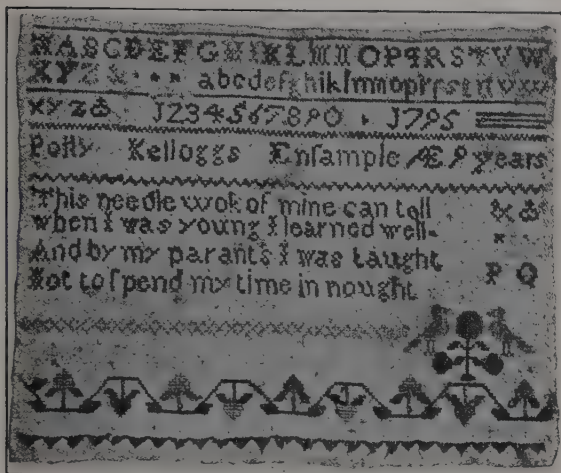 ABCDEFGHIKLMNOPQRSTVW
XYZ& abcdefghiklmnopqrsstuvwx
xyz& 1234567890 1795
Polly Kelloggs Ensample Æ 9 years
This needle wok of mine can tell
when I was young I learned well
And by my parants I was taught
Not to ſpend my time in nought
P Q